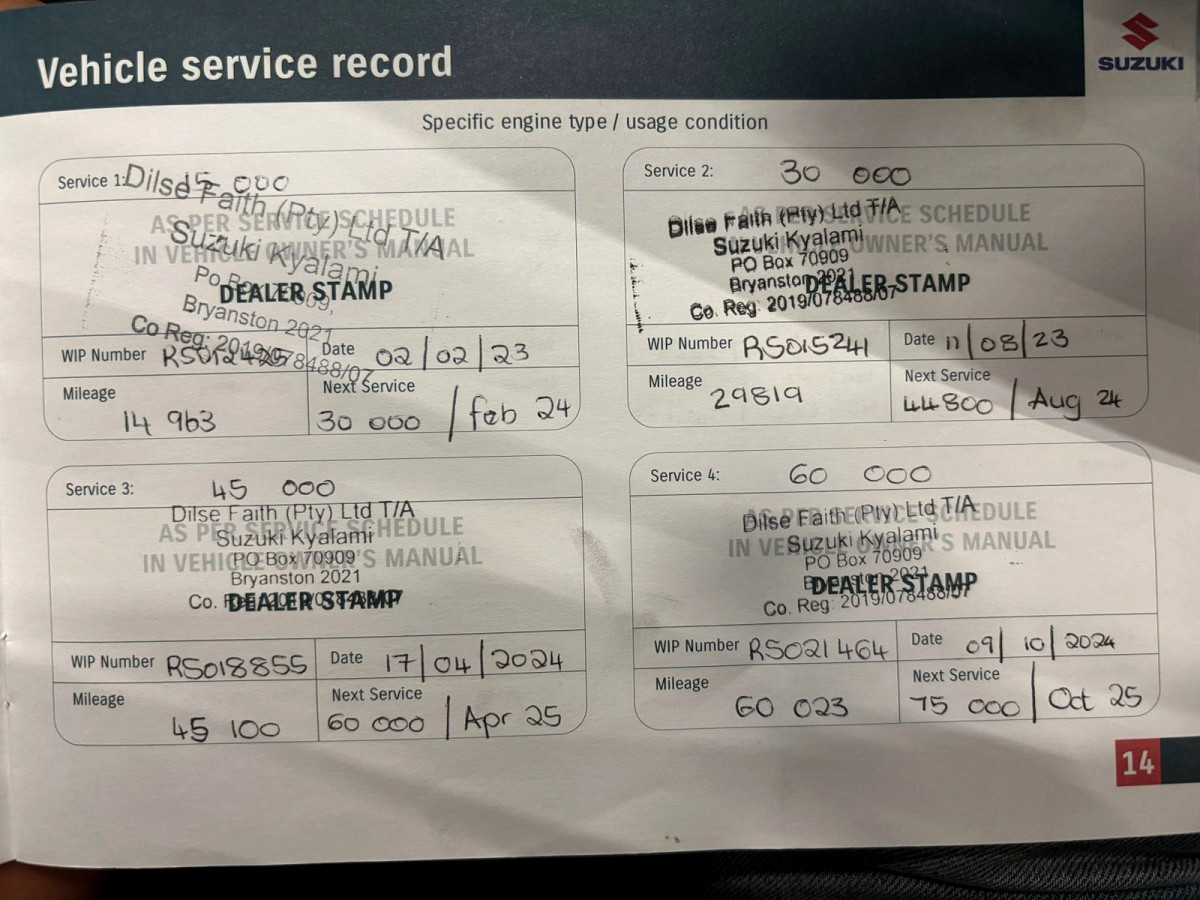 Vehicle service record
SUZUKI
Specific engine type / usage condition
Service 1: 15 000
Dilse Faith (Pty) Ltd T/A
AS PER SERVICE SCHEDULE
IN VEHICLE OWNER'S MANUAL
Suzuki Kyalami
DEALER STAMP
Bryanston 2021
Co Reg: 2019/078488/07
WIP Number RS012425
Date 02/02/23
Mileage
14 963
Next Service
30 000 / feb 24
Service 2: 30 000
Dilse Faith (Pty) Ltd T/A
AS PER SERVICE SCHEDULE
Suzuki Kyalami
OWNER'S MANUAL
PO Box 70909
Bryanston 2021
DEALER STAMP
Co. Reg: 2019/078488/07
WIP Number RS015241
Date 11/08/23
Mileage
29819
Next Service
44800 / Aug 24
Service 3: 45 000
Dilse Faith (Pty) Ltd T/A
AS PER SERVICE SCHEDULE
Suzuki Kyalami
IN VEHICLE OWNER'S MANUAL
PO Box 70909
Bryanston 2021
Co.
DEALER STAMP
WIP Number RS018855
Date 17/04/2024
Mileage
45 100
Next Service
60 000 / Apr 25
Service 4: 60 000
Dilse Faith (Pty) Ltd T/A
AS PER SERVICE SCHEDULE
Suzuki Kyalami
IN VEHICLE OWNER'S MANUAL
PO Box 70909
Bryanston 2021
DEALER STAMP
Co. Reg: 2019/078488/07
WIP Number RS021464
Date 09/10/2024
Mileage
60 023
Next Service
75 000 / Oct 25
14